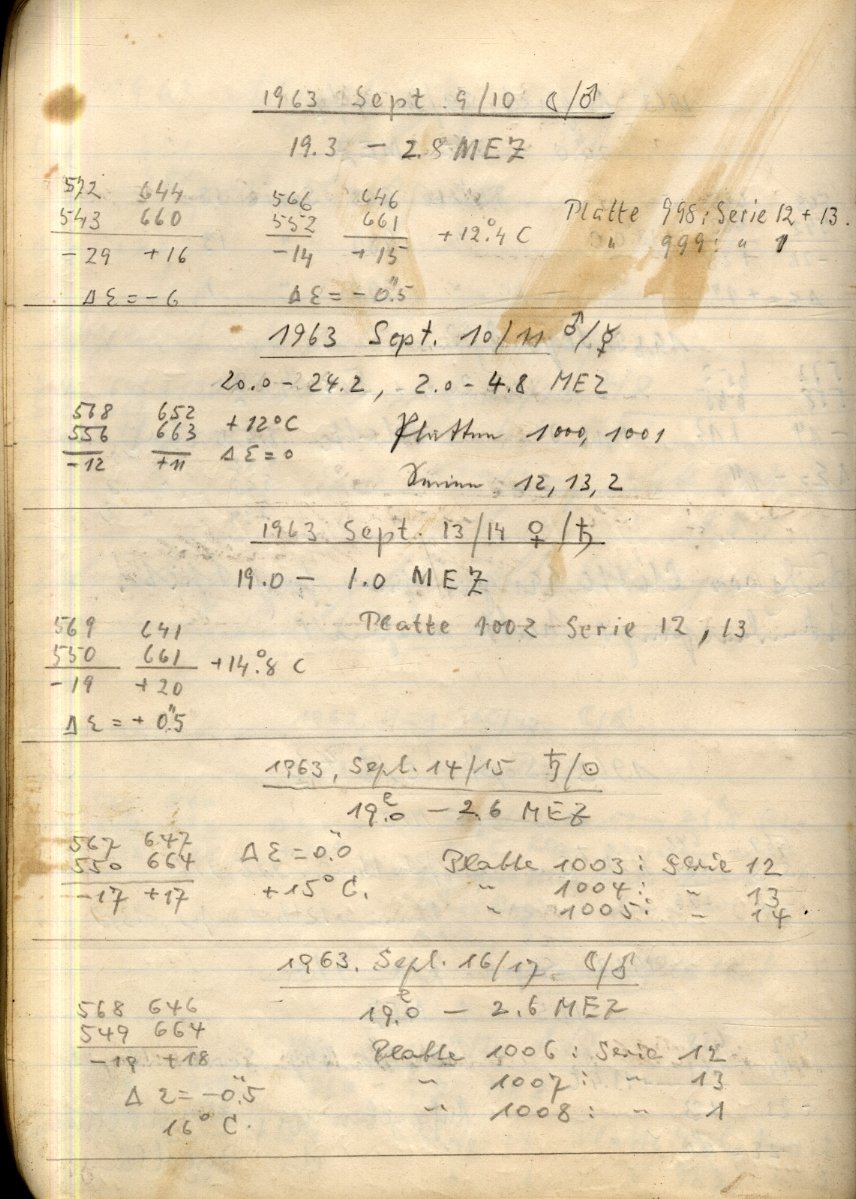 1963 Sept. 9/10 ☾/♂
19.3 — 2.8 MEZ
572 644 566 646
543 660 552 661 +12°.4 C Platte 998: Serie 12 + 13.
-29 +16 -14 +15 " 999: " 1
Δε = -6 Δε = -0".5
1963 Sept. 10/11 ♂/☿
20.0 - 24.2, 2.0 - 4.8 MEZ
568 652 +12°C Platten 1000, 1001
556 663
-12 +11 Δε = 0
Serien 12, 13, 2
1963 Sept. 13/14 ♀/♄
19.0 — 1.0 MEZ
569 641 Platte 1002 Serie 12, 13
550 661 +14°.8 C
-19 +20
Δε = +0".5
1963, Sept. 14/15 ♄/☉
19.0 — 2.6 MEZ
567 647 Δε = 0".0 Platte 1003: Serie 12
550 664 " 1004: " 13
-17 +17 +15° C. " 1005: " 14.
1963. Sept. 16/17. ☾/♂
19.0 — 2.6 MEZ
568 646
549 664 Platte 1006: Serie 12
-19 +18 " 1007: " 13
Δε = -0".5 " 1008: " 1
16° C.